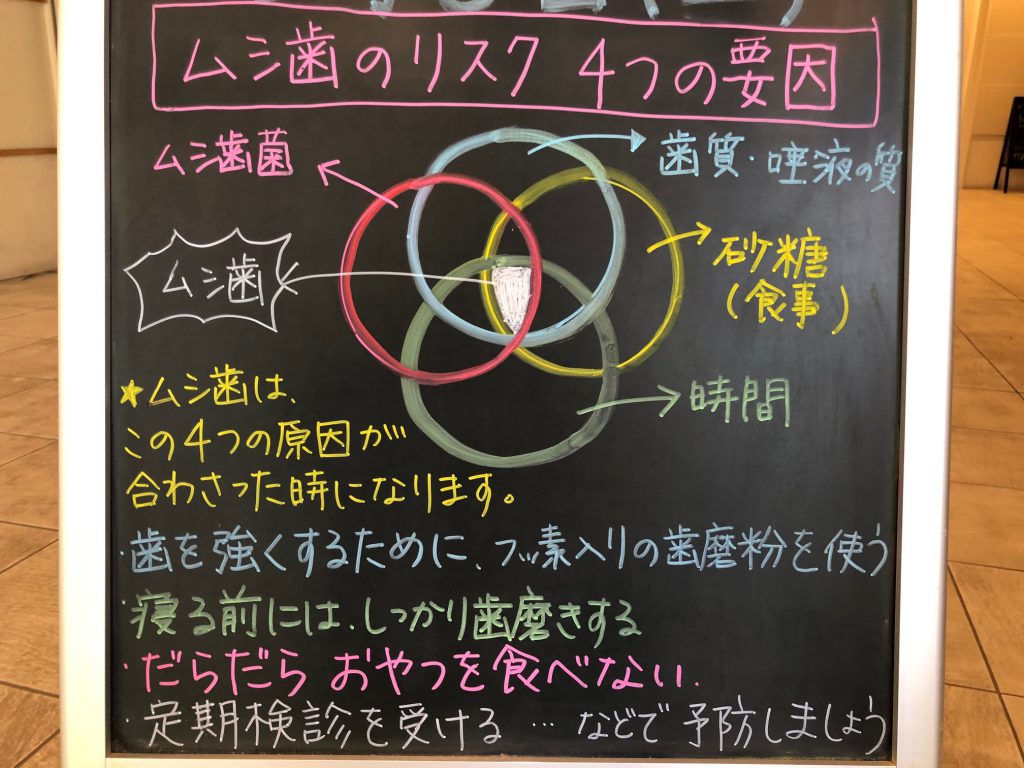 ムシ歯のリスク 4つの要因
ムシ歯菌
歯質・唾液の質
ムシ歯
砂糖
(食事)
時間
★ムシ歯は、
この4つの原因が
合わさった時になります。
・歯を強くするために、フッ素入りの歯磨粉を使う
・寝る前には、しっかり歯磨きする
・だらだら おやつを食べない.
・定期検診を受ける … などで予防しましょう